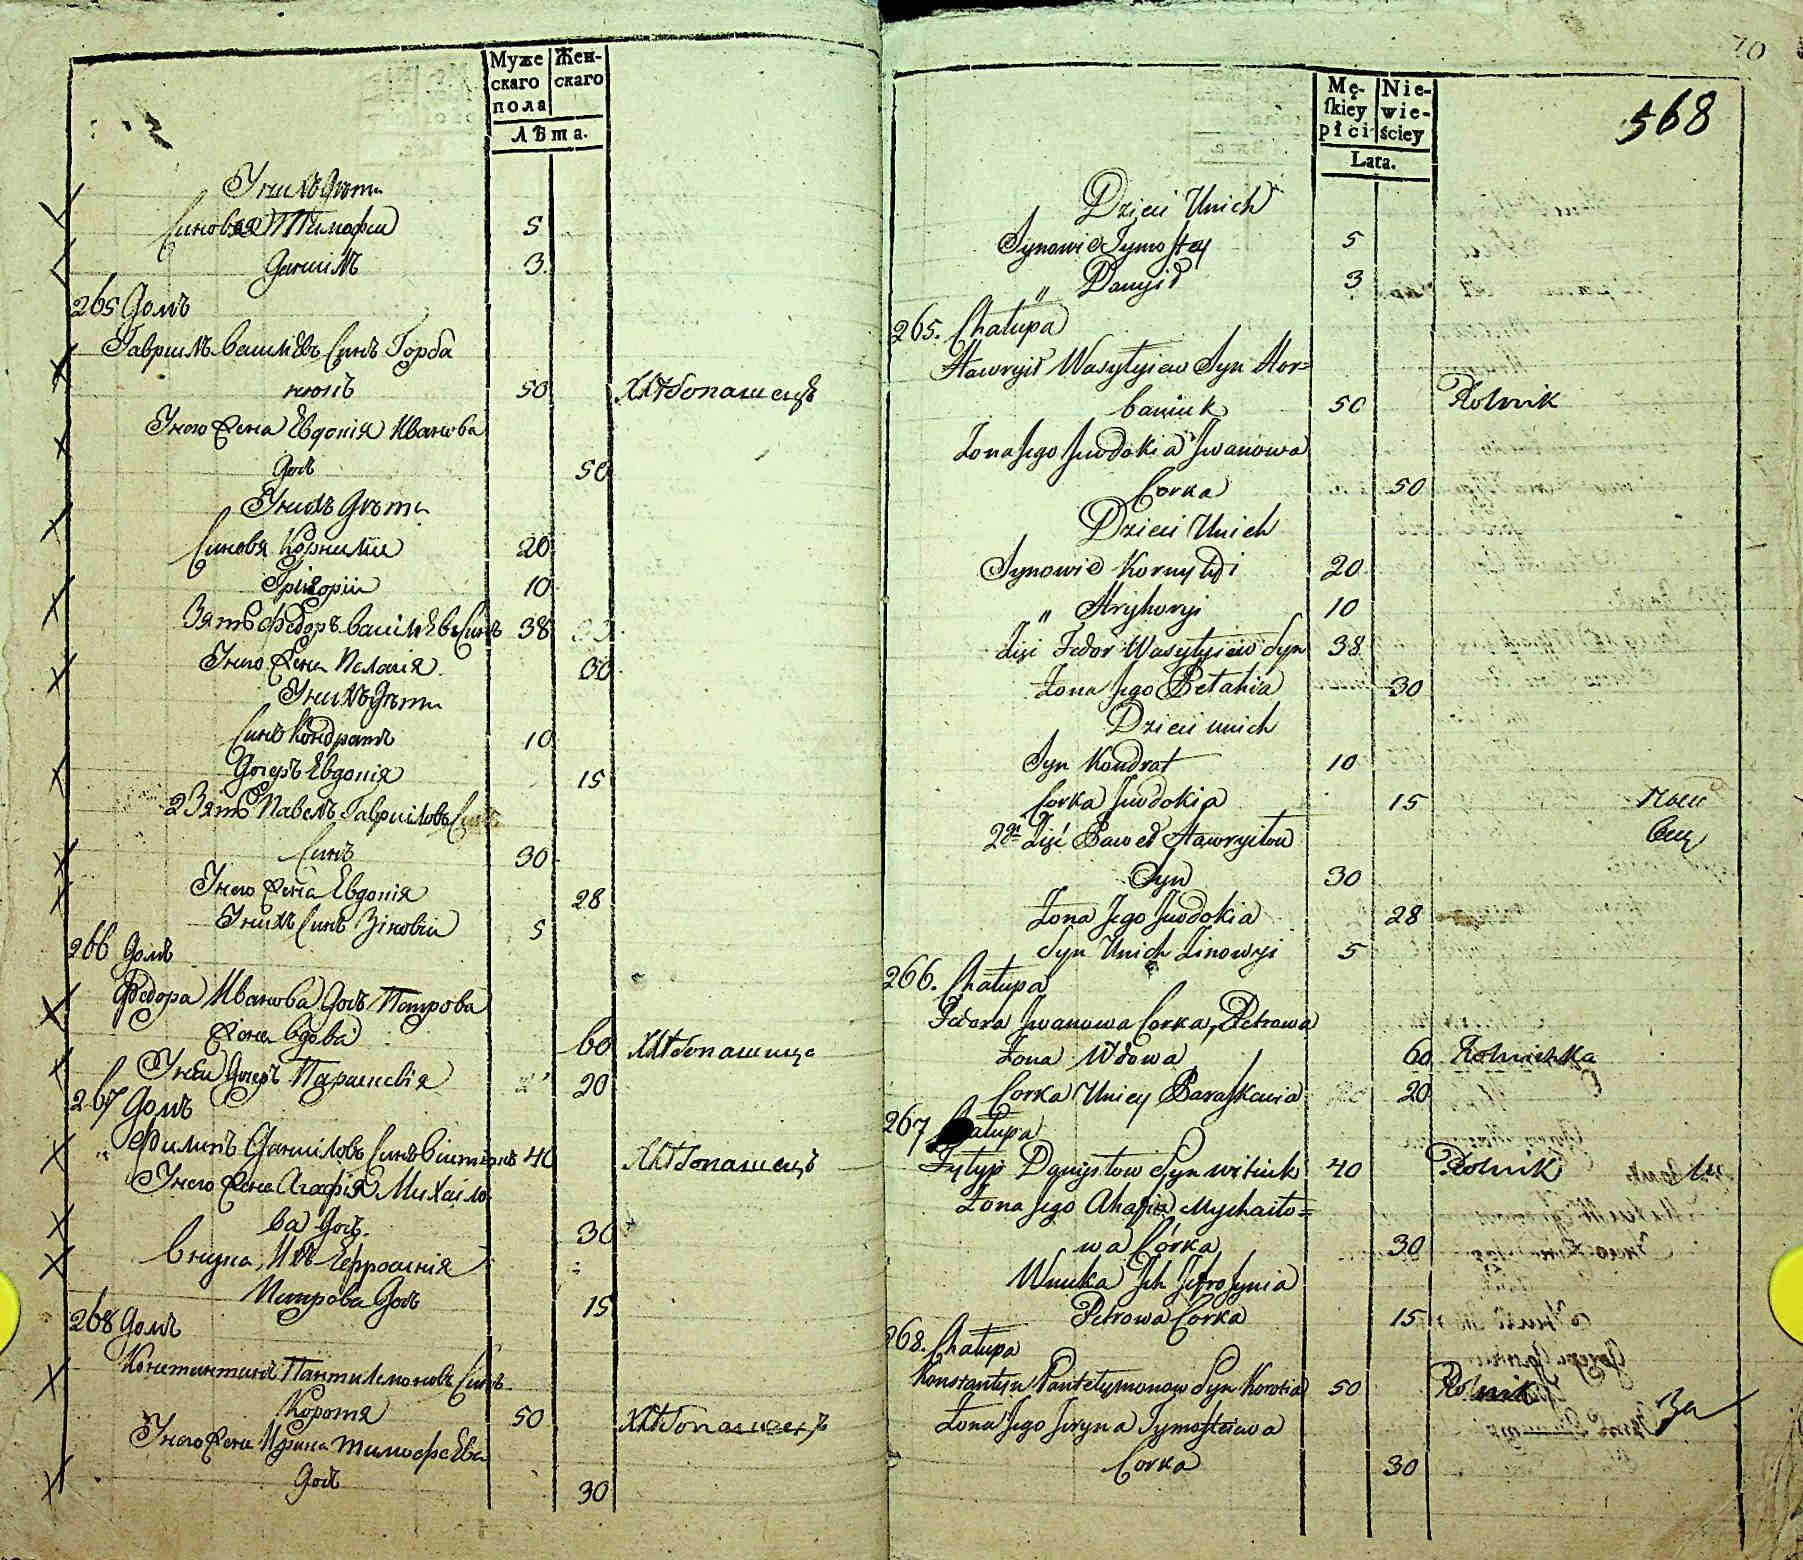 Муже Жен-
скаго скаго
пола
Лѣта.
У нихъ Дѣти
Синовя Тимофей 5
Данiилъ 3
265 Домъ
Гаврiилъ Василiевъ Синъ Горба
нюкъ 50 Хлѣбопашецъ
У него Жена Евдокiя Иванова
Дочь 50
У нихъ Дѣти
Синовя Корнилiй 20
Григорiй 10
Зять Федоръ Василiевъ Синъ 38
У него Жена Пелагiя 30
У нихъ Дѣти
Синъ Кондратъ 10
Дочеръ Евдокiя 15
2 Зять Павелъ Гаврiиловъ Синъ
Синъ 30
У него Жена Евдокiя 28
У нихъ Синъ Зiновiй 5
266 Домъ
Федора Иванова Дочь Петрова
Жена Вдова 60 Хлѣбопашица
У ней Дочеръ Параскевiя 20
267 Домъ
Филипъ Данiиловъ Синъ 40 Хлѣбопашецъ
У него Жена Агафiя Михайло
ва Дочь 30
Внука Ихъ Ефросинiя
Петрова Дочь 15
268 Домъ
Константинъ Пантилимоновъ Синъ
Коротя 50 Хлѣбопашецъ
У него Жена Ирина Тимофеева
Дочь 30
70
568
Mę- Nie-
ſkiey wie-
płci ściey
Lata.
Dzieci Unich
Synowie Tymofiey 5
" Danyił 3
265. Chałupa
Hawryił Wasylyiew Syn Hor=
baniuk 50 Rolnik
Zona Jego Jewdokia Jwanowa
Corka 50
Dzieci Unich
Synowie Kornyłyi 20
" Hryhoryi 10
Zięć Fedor Wasylyiew Syn 38
Zona Jego Pelahia 30
Dzieci unich
Syn Kondrat 10
Corka Jewdokia 15
2gi Zięć Paweł Hawryiłow
Syn 30
Zona Jego Jewdokia 28
Syn Unich Zinowyi 5
266. Chałupa
Fedora Jwanowa Corka, Petrowa
Zona Wdowa 60 Rolniczka
Corka Uniey Paraskewia 20
267 Chałupa
Fylyp Danyiłow Syn Witiuk 40 Rolnik
Zona Jego Ahafia Mychaiło=
wa Córka 30
Wnuka Jch Jefrosynia
Petrowa Corka 15
268. Chałupa
Konstantyn Pantelymonow Syn Korotia 50 Rolnik
Zona Jego Jryna Tymofieiewa
Corka 30